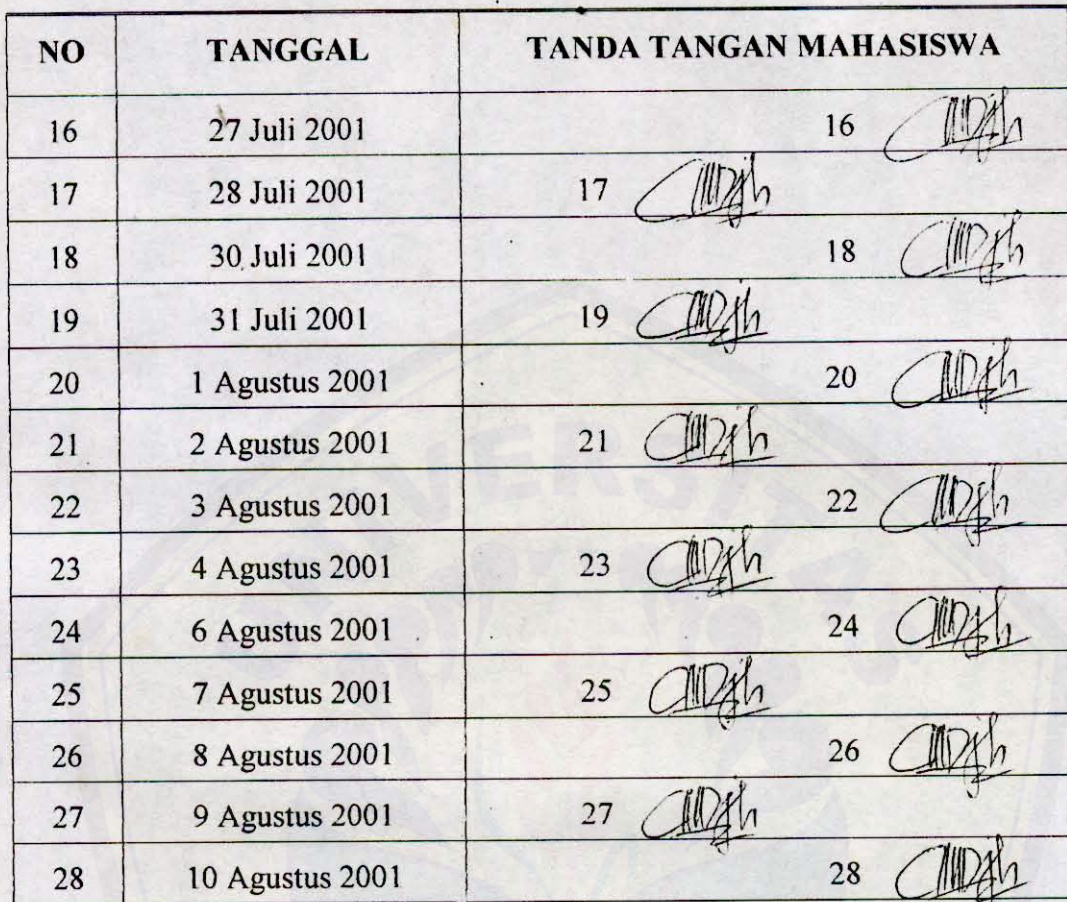 NO TANGGAL TANDA TANGAN MAHASISWA
16 27 Juli 2001 16
17 28 Juli 2001 17
18 30 Juli 2001 18
19 31 Juli 2001 19
20 1 Agustus 2001 20
21 2 Agustus 2001 21
22 3 Agustus 2001 22
23 4 Agustus 2001 23
24 6 Agustus 2001 24
25 7 Agustus 2001 25
26 8 Agustus 2001 26
27 9 Agustus 2001 27
28 10 Agustus 2001 28